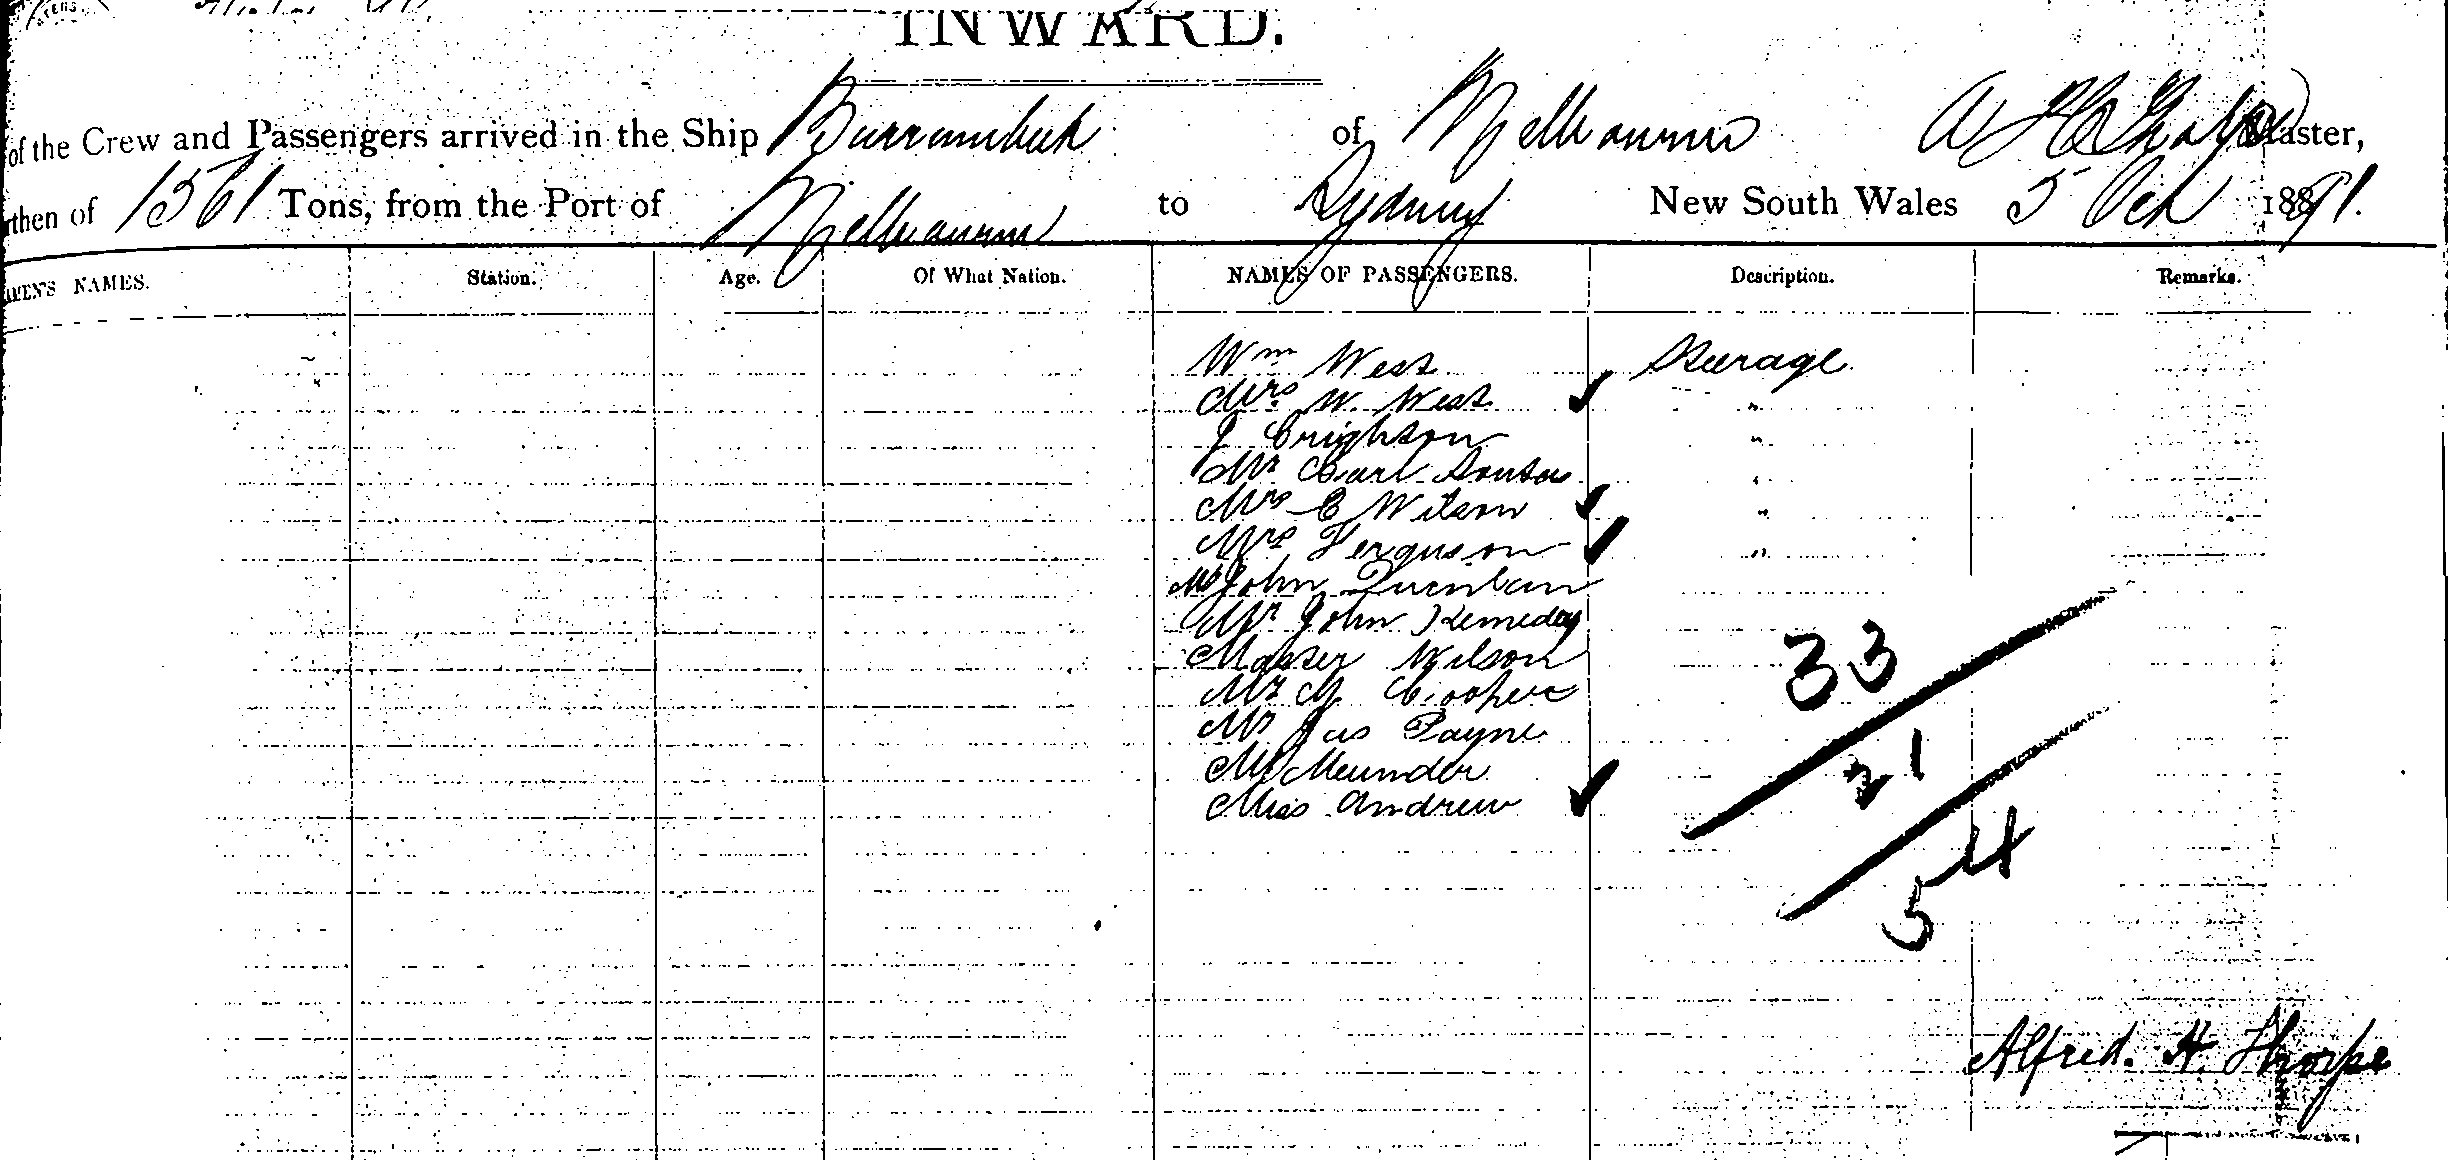 INWARD.
of the Crew and Passengers arrived in the Ship Burrumbeet of Melbourne A H Thorpe Master,
rthen of 1561 Tons, from the Port of Melbourne to Sydney New South Wales 5 Oct 1891.
MEN'S NAMES. Station. Age. Of What Nation. NAMES OF PASSENGERS. Description. Remarks.
Wm West Steerage
Mrs W. West "
J Crighton "
Mr Carl "
Mrs C Wilson "
Mrs Ferguson "
Mr John Quinlan
Mr John Kennedy
Master Wilson
Mr M Cooper
Mr Jas Payne
Mr Meunder
Miss Andrew
33
21
54
Alfred. H. Thorpe